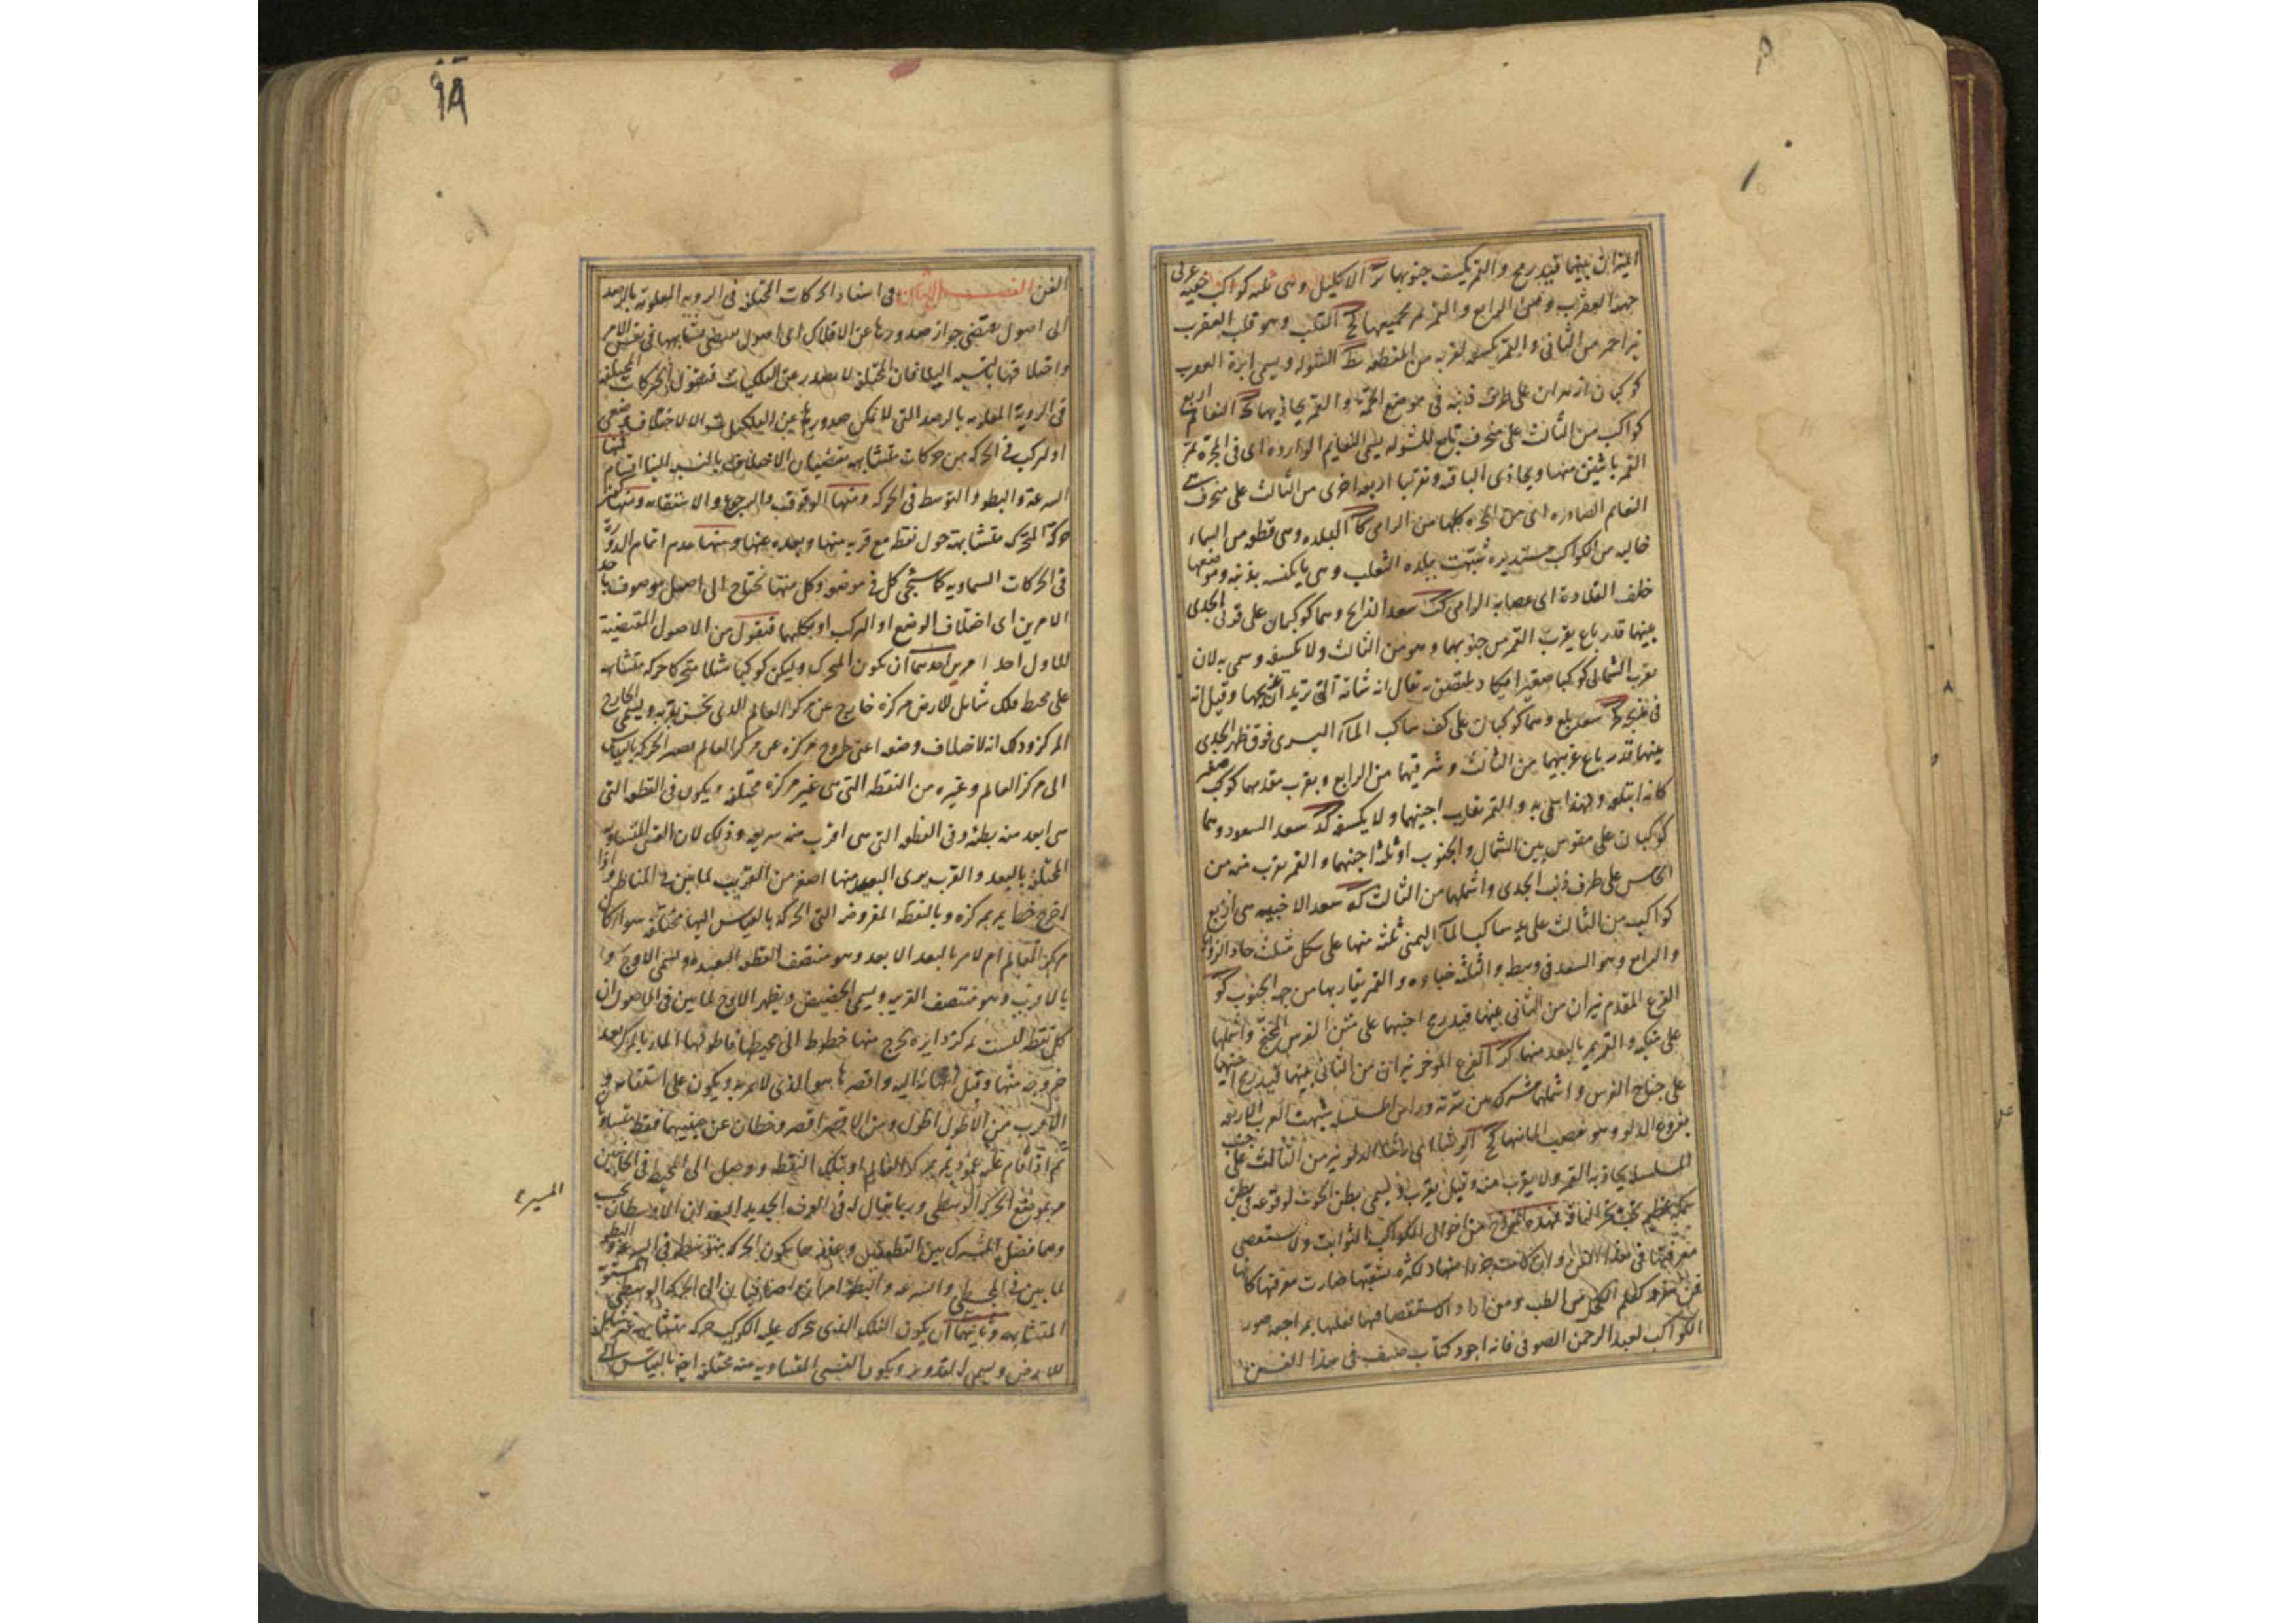 الميزان بينهما قيد رمح والقمر يكسف جنوبيها يز الاكليل وهى ثلثة كواكب خفية على
جبهة العقرب وهى من الرابع والقمر يمر بجميعها يح القلب وهو قلب العقرب
نير احمر من الثانى والقمر يكسفه لقربه من المنطقة يط الشولة ويسمى ابرة العقرب
كوكبان ازهران على طرف ذنبه فى موضع الحمة والقمر يحاذيهما ك النعائم اربع
كواكب من الثالث على منحرف تابع للشولة يسمى النعايم الواردة اى فى المجرة يمر
القمر باثنين منها ويحاذى الباقية وبقربها اربعة اخرى من الثالث على منحرف هى
النعائم الصادرة اى من المجرة كلها من الرامى كا البلدة وهى قطعة من السماء
خالية من الكواكب مستديرة شبهت ببلدة الثعلب وهى ما يكنسه بذنبه وموضعها
خلف القلادة اى عصابة الرامى كب سعد الذابح وهما كوكبان على قرنى الجدى
بينهما قدر باع يقرب القمر من جنوبيهما وهو من الثالث ولا يكسفه وسمى به لان
بقرب الشمالى كوكبا صغيرا يكاد يلتصق به يقال انه شاته التى يريد ان يذبحها وقيل انه
فى مذبحه كج سعد بلع وهما كوكبان على كف ساكب الماء اليسرى فوق ظهر الجدى
بينهما قدر باع غربيهما من الثالث وشرقيهما من الرابع وبقرب مقدمهما كوكب صغير
كانه ابتلعه ولهذا سمى به والقمر يقارب اجنبهما ولا يكسفه كد سعد السعود وهما
كوكبان على مقوس بين الشمال والجنوب او ثلثة اجنبها والقمر يقرب منه من
الخامس على طرف ذنب الجدى واشملها من الثالث كه سعد الاخبية هى اربع
كواكب من الثالث على يد ساكب الماء اليمنى ثلثة منها على شكل مثلث حاد الزوايا
والرابع وهو السعد فى وسطه والثلثة خباؤه والقمر يقاربها من جهة الجنوب كو
الفرغ المقدم نيران من الثانى بينهما قيد رمح اجنبهما على متن الفرس المجنح واشملها
على منكبه والقمر يمر بالبعد منهما كز الفرغ المؤخر نيران من الثانى بينهما قيد رمح اجنبهما
على جناح الفرس واشملهما مشترك بين سرته وراس المسلسلة شبهت العرب الاربعة
بفروغ الدلو وهو مصب الماء منها كح الرشاء اى رشاء الدلو نير من الثالث على جنب
المسلسلة يحاذيه القمر ولا يقرب منه وقيل يقرب ويسمى بطن الحوت لوقوعه فى بطن
سمكة عظيمة تحت نحر الناقة فهذه انموذج من احوال الكواكب الثوابت ولا يستقصى
معرفتها فى هذا الفن ولان كانت جزءا منها ولكثرة شعبها صارت معرفتها كانها
فن مفرد كعلم الكحل من الطب ومن اراد الاستقصاء فيها فعليه بمراجعة صور
الكواكب لعبد الرحمن الصوفى فانه اجود كتاب صنف فى هذا الفن
٩٨
الفصل الثامن فى اسناد الحركات المختلفة فى الروية المعلومة بالرصد
الى اصول يقتضى جواز صدورها عن الافلاك اى اصول يقتضى تشابهها فى نفس الامر
واختلافها بالنسبة الينا فان المختلف لا يصدر عن الفلكيات فنقول الحركات المختلفة
فى الروية المعلومة بالرصد التى لا يمكن صدورها عن الفلكيات الا لاختلاف وضعى
او لتركب فى الحركة من حركات متشابهة يقتضيان الاختلاف بالنسبة الينا اقسام منها
السرعة والبطؤ والتوسط فى الحركة ومنها الوقوف والرجوع والاستقامة ومنها كون
حركة المتحرك متشابهة حول نقطة مع قربه منها وبعده عنها ومنها عدم اتمام الدورة
فى الحركات السماوية كما سيجئ كل فى موضعه وكل منها تحتاج الى اصل موصوف باحد
الامرين اى اختلاف الوضع او التركب او بكليهما فنقول من الاصول المقتضية
للاول احد امرين احدهما ان يكون المتحرك وليكن كوكبا مثلا متحركا حركة متشابهة
على محيط فلك شامل للارض مركزه خارج عن مركز العالم الذى نحن بقربه ويسمى الخارج
المركز وذلك انه لاختلاف وضعه اعنى خروج مركزه عن مركز العالم يصير الحركة بالقياس
الى مركز العالم وغيره من النقطة التى هى غير مركزه مختلفة ويكون فى القطعة التى
هى ابعد منه بطيئة وفى القطعة التى هى اقرب منه سريعة وذلك لان القسى المتساوية
المختلفة بالبعد والقرب يرى البعيد منها اصغر من القريب لما بين فى المناظر واذا
اخرج خط يمر بمركزه وبالنقطة المفروضة التى الحركة بالقياس اليها مختلفة سواء كان
مركز العالم ام لا مر بالبعد الابعد وهو منتصف القطعة البعيدة ويسمى الاوج و
بالاقرب وهو منتصف القريبة ويسمى الحضيض ويظهر الاوج لما بين فى الاصول ان
كل نقطة ليست مركز دايرة يخرج منها خطوط الى محيطها فاطولها المار بالمركز بعد
خروجه منها وقبل انتهائه اليه واقصرها هو الذى لا يمر به ويكون على استقامته و
الاقرب من الاطول اطول ومن الاقصر اقصر وخطان عن جنبيهما فقط متساويان
ثم اذا قام عليه عمود يمر بمركز العالم او بتلك النقطة ووصل الى المحيط فى الجانبين
مر بموضع الحركة الوسطى وربما يقال له فى العرف الجديد البعدان الاوسطان بحسب
المسير
وهما فصل المشترك بين القطعتين وعندهما يكون الحركة متوسطة فى السرعة والبطؤ
لما بين فى المجسطى والسرعة والبطؤ امران اضافيان الى الحركة الوسطى المستوية
المتشابهة وثانيهما ان يكون الفلك الذى يتحرك عليه الكوكب حركة متشابهة غير شامل
للارض ويسمى التدوير ويكون القسى المتساوية منه مختلفة ايضا بالقياس الى